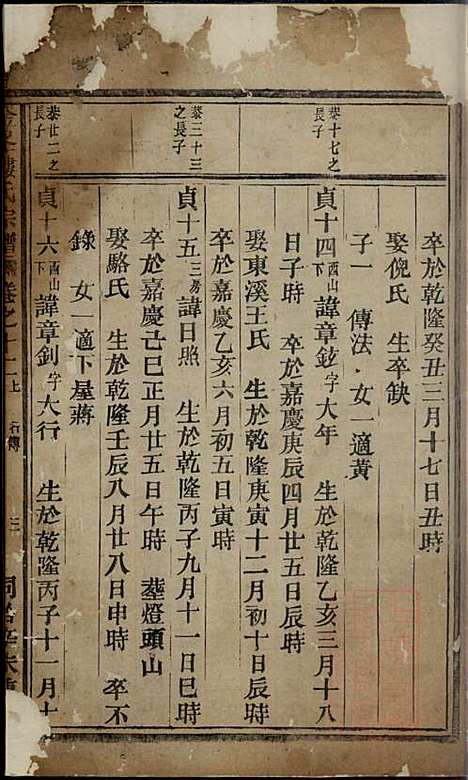 卒於乾隆癸丑三月十七日丑時
娶倪氏 生卒缺
子一 傳法 女一適黃
葵十七之長子
貞十四酉山下諱章鉉字大年 生於乾隆乙亥三月十八
日子時 卒於嘉慶庚辰四月廿五日辰時
娶東溪王氏 生於乾隆庚寅十二月初十日辰時
卒於嘉慶乙亥六月初五日寅時
葵三十三之長子
貞十五三房諱日照 生於乾隆丙子九月十一日巳時
卒於嘉慶己巳正月廿五日午時 塟燈頭山
娶駱氏 生於乾隆壬辰八月廿八日申時 卒不
錄 女一適下屋蔣
葵廿二之長子
貞十六酉山下諱章釗字大行 生於乾隆丙子十一月十
氏宗譜 卷之十二上